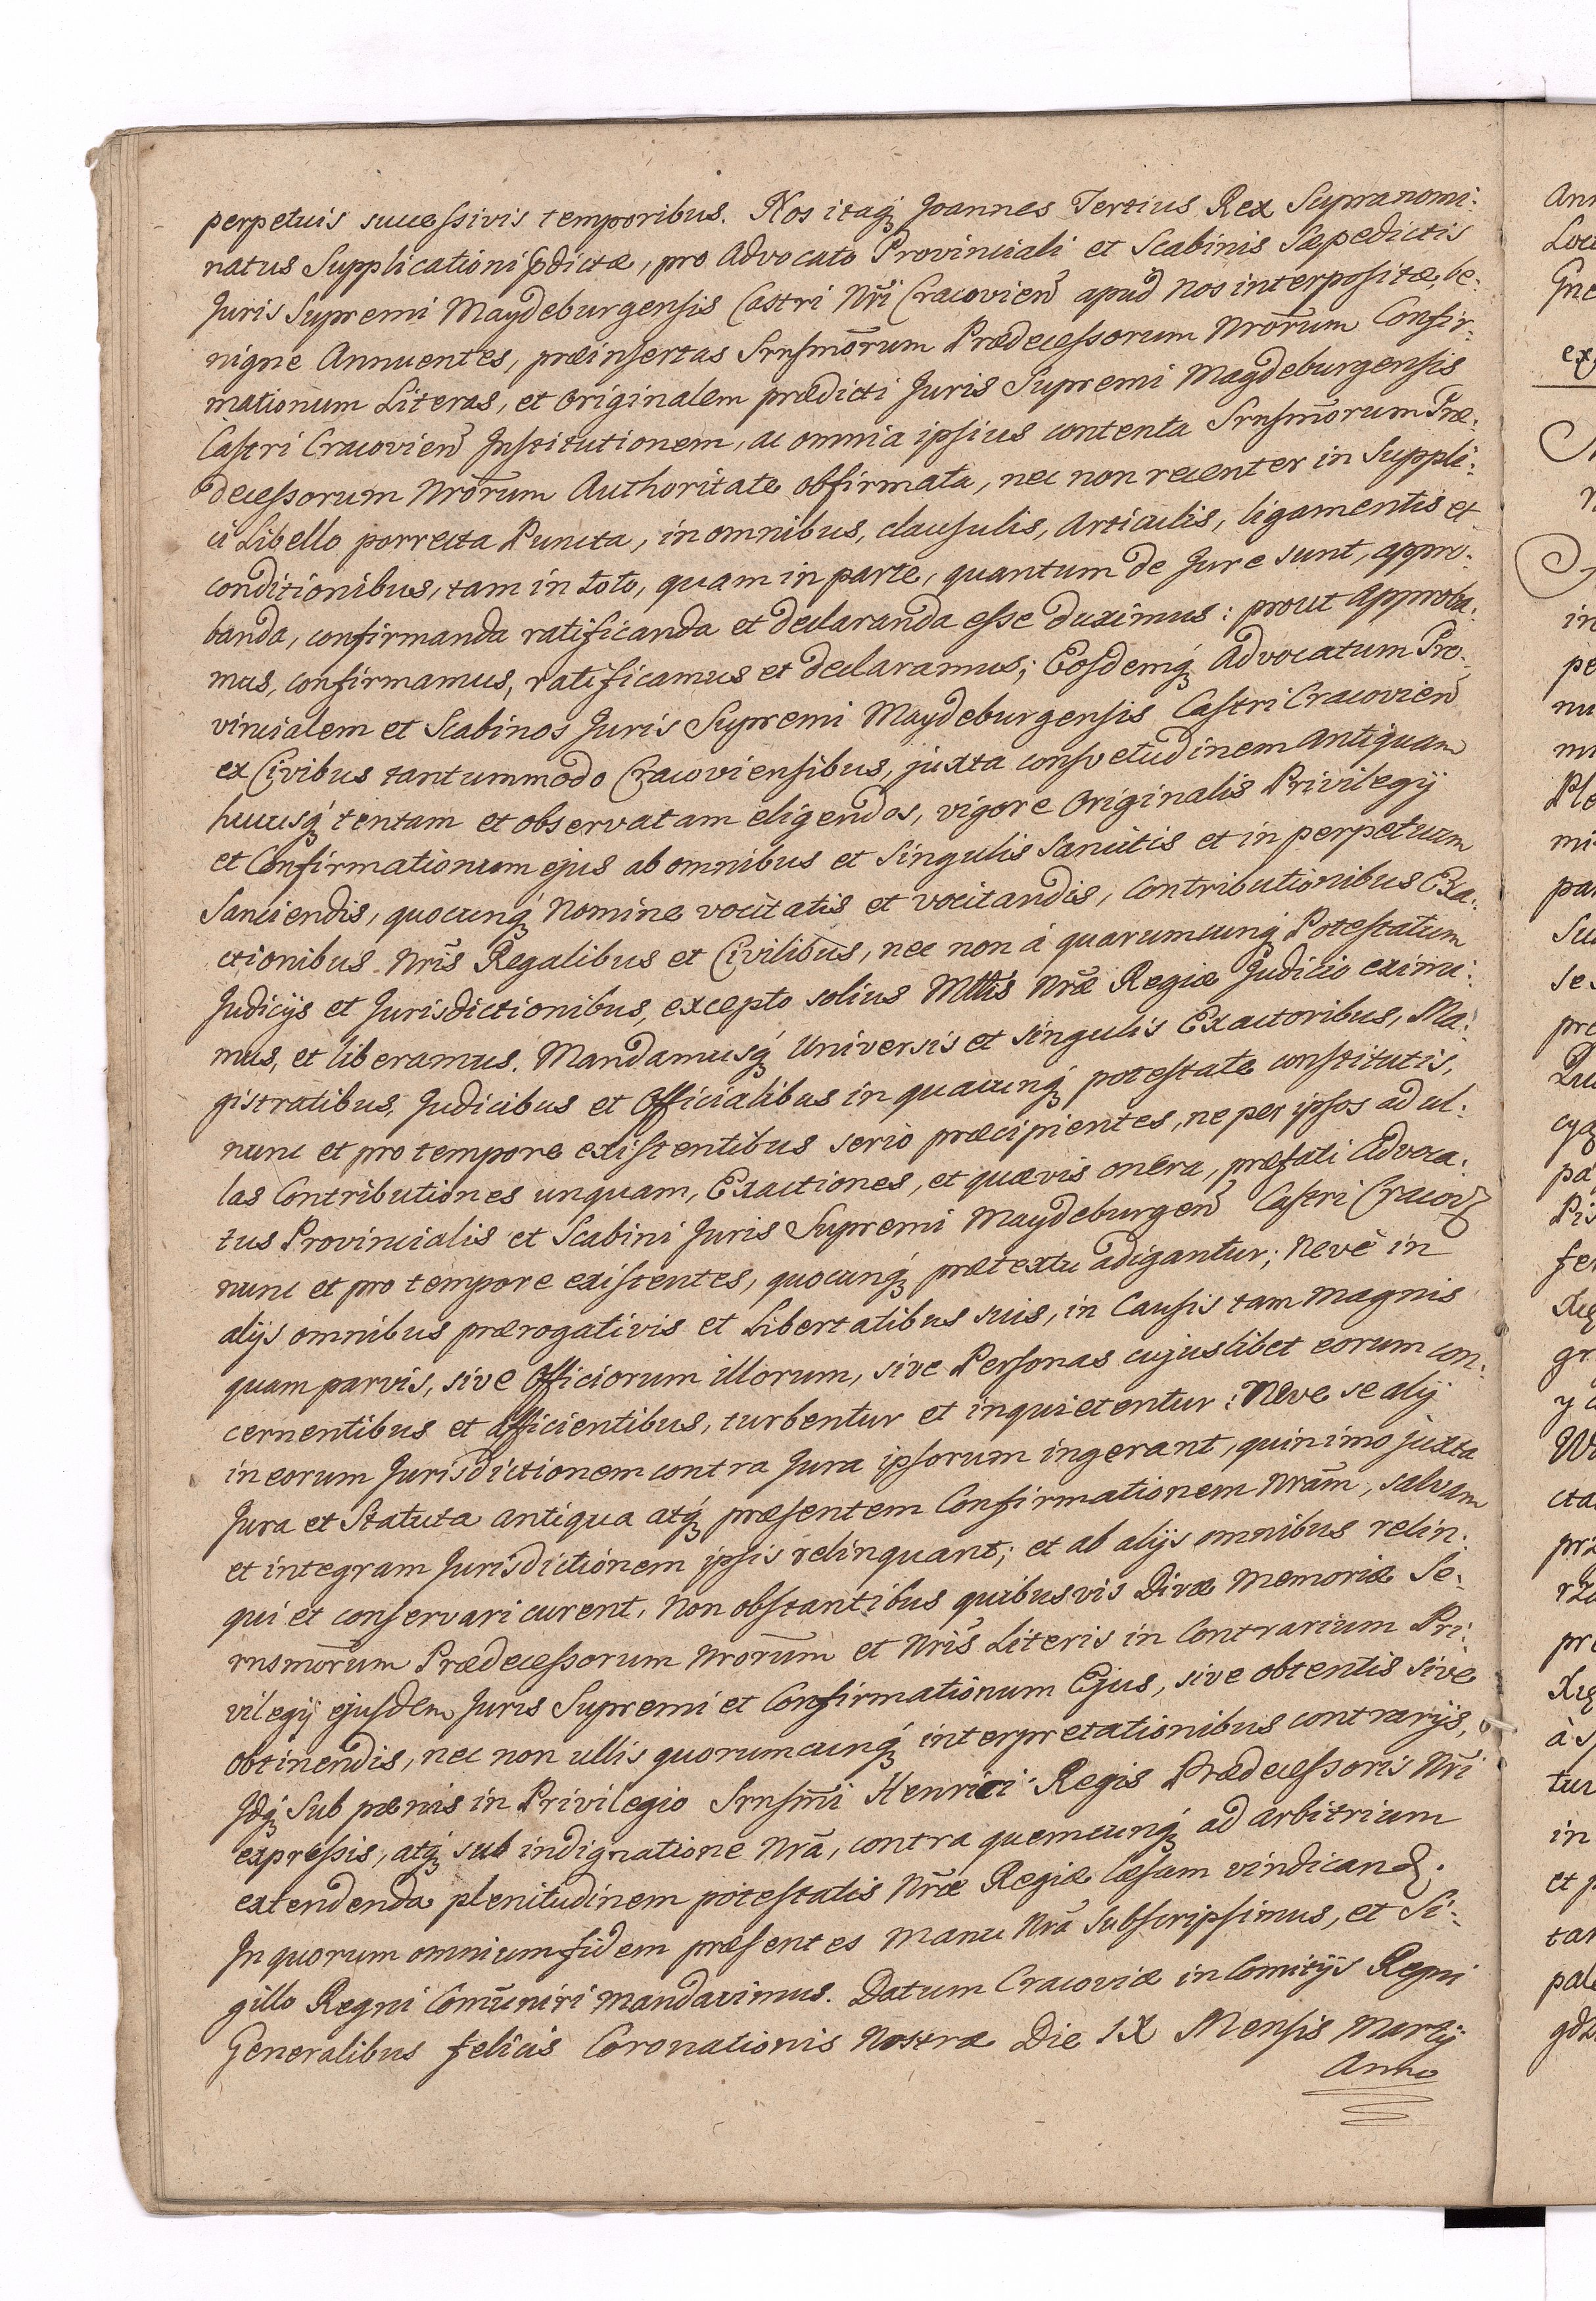 perpetuis successivis temporibus. Nos itaq́ʒ Joannes Tertius Rex Supranomi:
natus Supplicationi p̃dictæ, pro Advocato Provinciali et Scabinis Sæpedictis
Juris Supremi Maydeburgensis Castri Nr̃i Cracovieñ apud nos interpositæ, be:
nigne Annuentes, præinsertas Srnsmõrum Prædecessorum Nrõrum Confir:
mationum Literas, et Originalem prædicti Juris Supremi Magdeburgensis
Castri Cracovieñ Institutionem, ac omnia ipsius contenta Srnsmõrum Præ:
decessorum Nrõrum Authoritate obfirmata, nec non recenter in Suppli:
ci Libello porrecta Puncta, in omnibus, clausulis, Articulis, ligamentis et
conditionibus, tam in toto, quam in parte, quantum de Jure sunt, appro:
banda, confirmanda ratificanda et declaranda esse duximus: prout Approba:
mus, confirmamus, ratificamus et declaramus; Eosdemq́ʒ Advocatum Pro:
vincialem et Scabinos Juris Supremi Maydeburgensis Castri Cracovieñ
ex Civibus tantummodo Cracoviensibus, juxta consvetudinem antiquam
hucusq́ʒ tentam et observatam eligendos, vigore Originalis Privilegÿ
et Confirmationum ejus ab omnibus et singulis Sancitis et in perpetuum
Sanciendis, quocunq́ʒ Nomine vocitatis et vocitandis, Contributionibus Exa:
ctionibus Nrĩs Regalibus et Civilibus, nec non á quarumcunq́ʒ Potestatum
Judicÿs et Jurisdictionibus, excepto solius Mttis Nræ̃ Regiæ Judicio eximi:
mus, et liberamus. Mandamusq́ʒ Universis et singulis Exactoribus, Ma:
gistratibus, Judicibus et Officialibus in quacunq́ʒ potestate constitutis,
nunc et pro tempore existentibus seriò præcipientes, ne per ipsos ad ul:
las Contributiones unquam, Exactiones, et quævis onera, præfati Advoca:
tus Provincialis et Scabini Juris Supremi Maydeburgeñ Castri Cracovi
nunc et pro tempore existentes, quocunq́ʒ prætextu adigantur; Nevè in
alÿs omnibus prærogativis et Libertatibus suis, in Causis tam magnis
quam parvis, sive Officiorum illorum, sive Personas cujuslibet eorum con:
cernentibus et afficientibus, turbentur et inquietentur: Neve se alÿ
in eorum Jurisdictionem contra Jura ipsorum ingerant, quinimo juxta
Jura et Statuta antiqua atq́ʒ præsentem Confirmationem Nrãm, salvam
et integram Jurisdictionem ipsis relinquant; et ab alÿs omnibus relin:
qui et conservari curent, Non obstantibus quibusvis Divæ Memoriæ Se:
rnsmõrum Prædecessorum Nrõrum et Nrĩs Literis in Contrarium Pri:
vilegÿ ejusdem Juris Supremi et Confirmationum Ejus, sive obtentis sive
obtinendis, nec non ullis quorumcunq́ʒ interpretationibus contrarÿs,
Idq́ʒ Sub pænis in Privilegio Srnsm̃i Henrici Regis Prædecessoris Nr̃i
expressis, atq́ʒ sub indignatione Nrã, contra quemcunq́ʒ ad arbitrium
extendenda plenitudinem potestatis Nræ̃ Regiæ læsam vindicand.
In quorum omnium fidem præsentes Manu Nrã Subscripsimus, et Si:
gillo Regni Comũniri mandavimus. Datum Cracoviæ in Comitÿs Regni
Generalibus felicis Coronationis Nostræ Die IX Mensis Martÿ
Anno